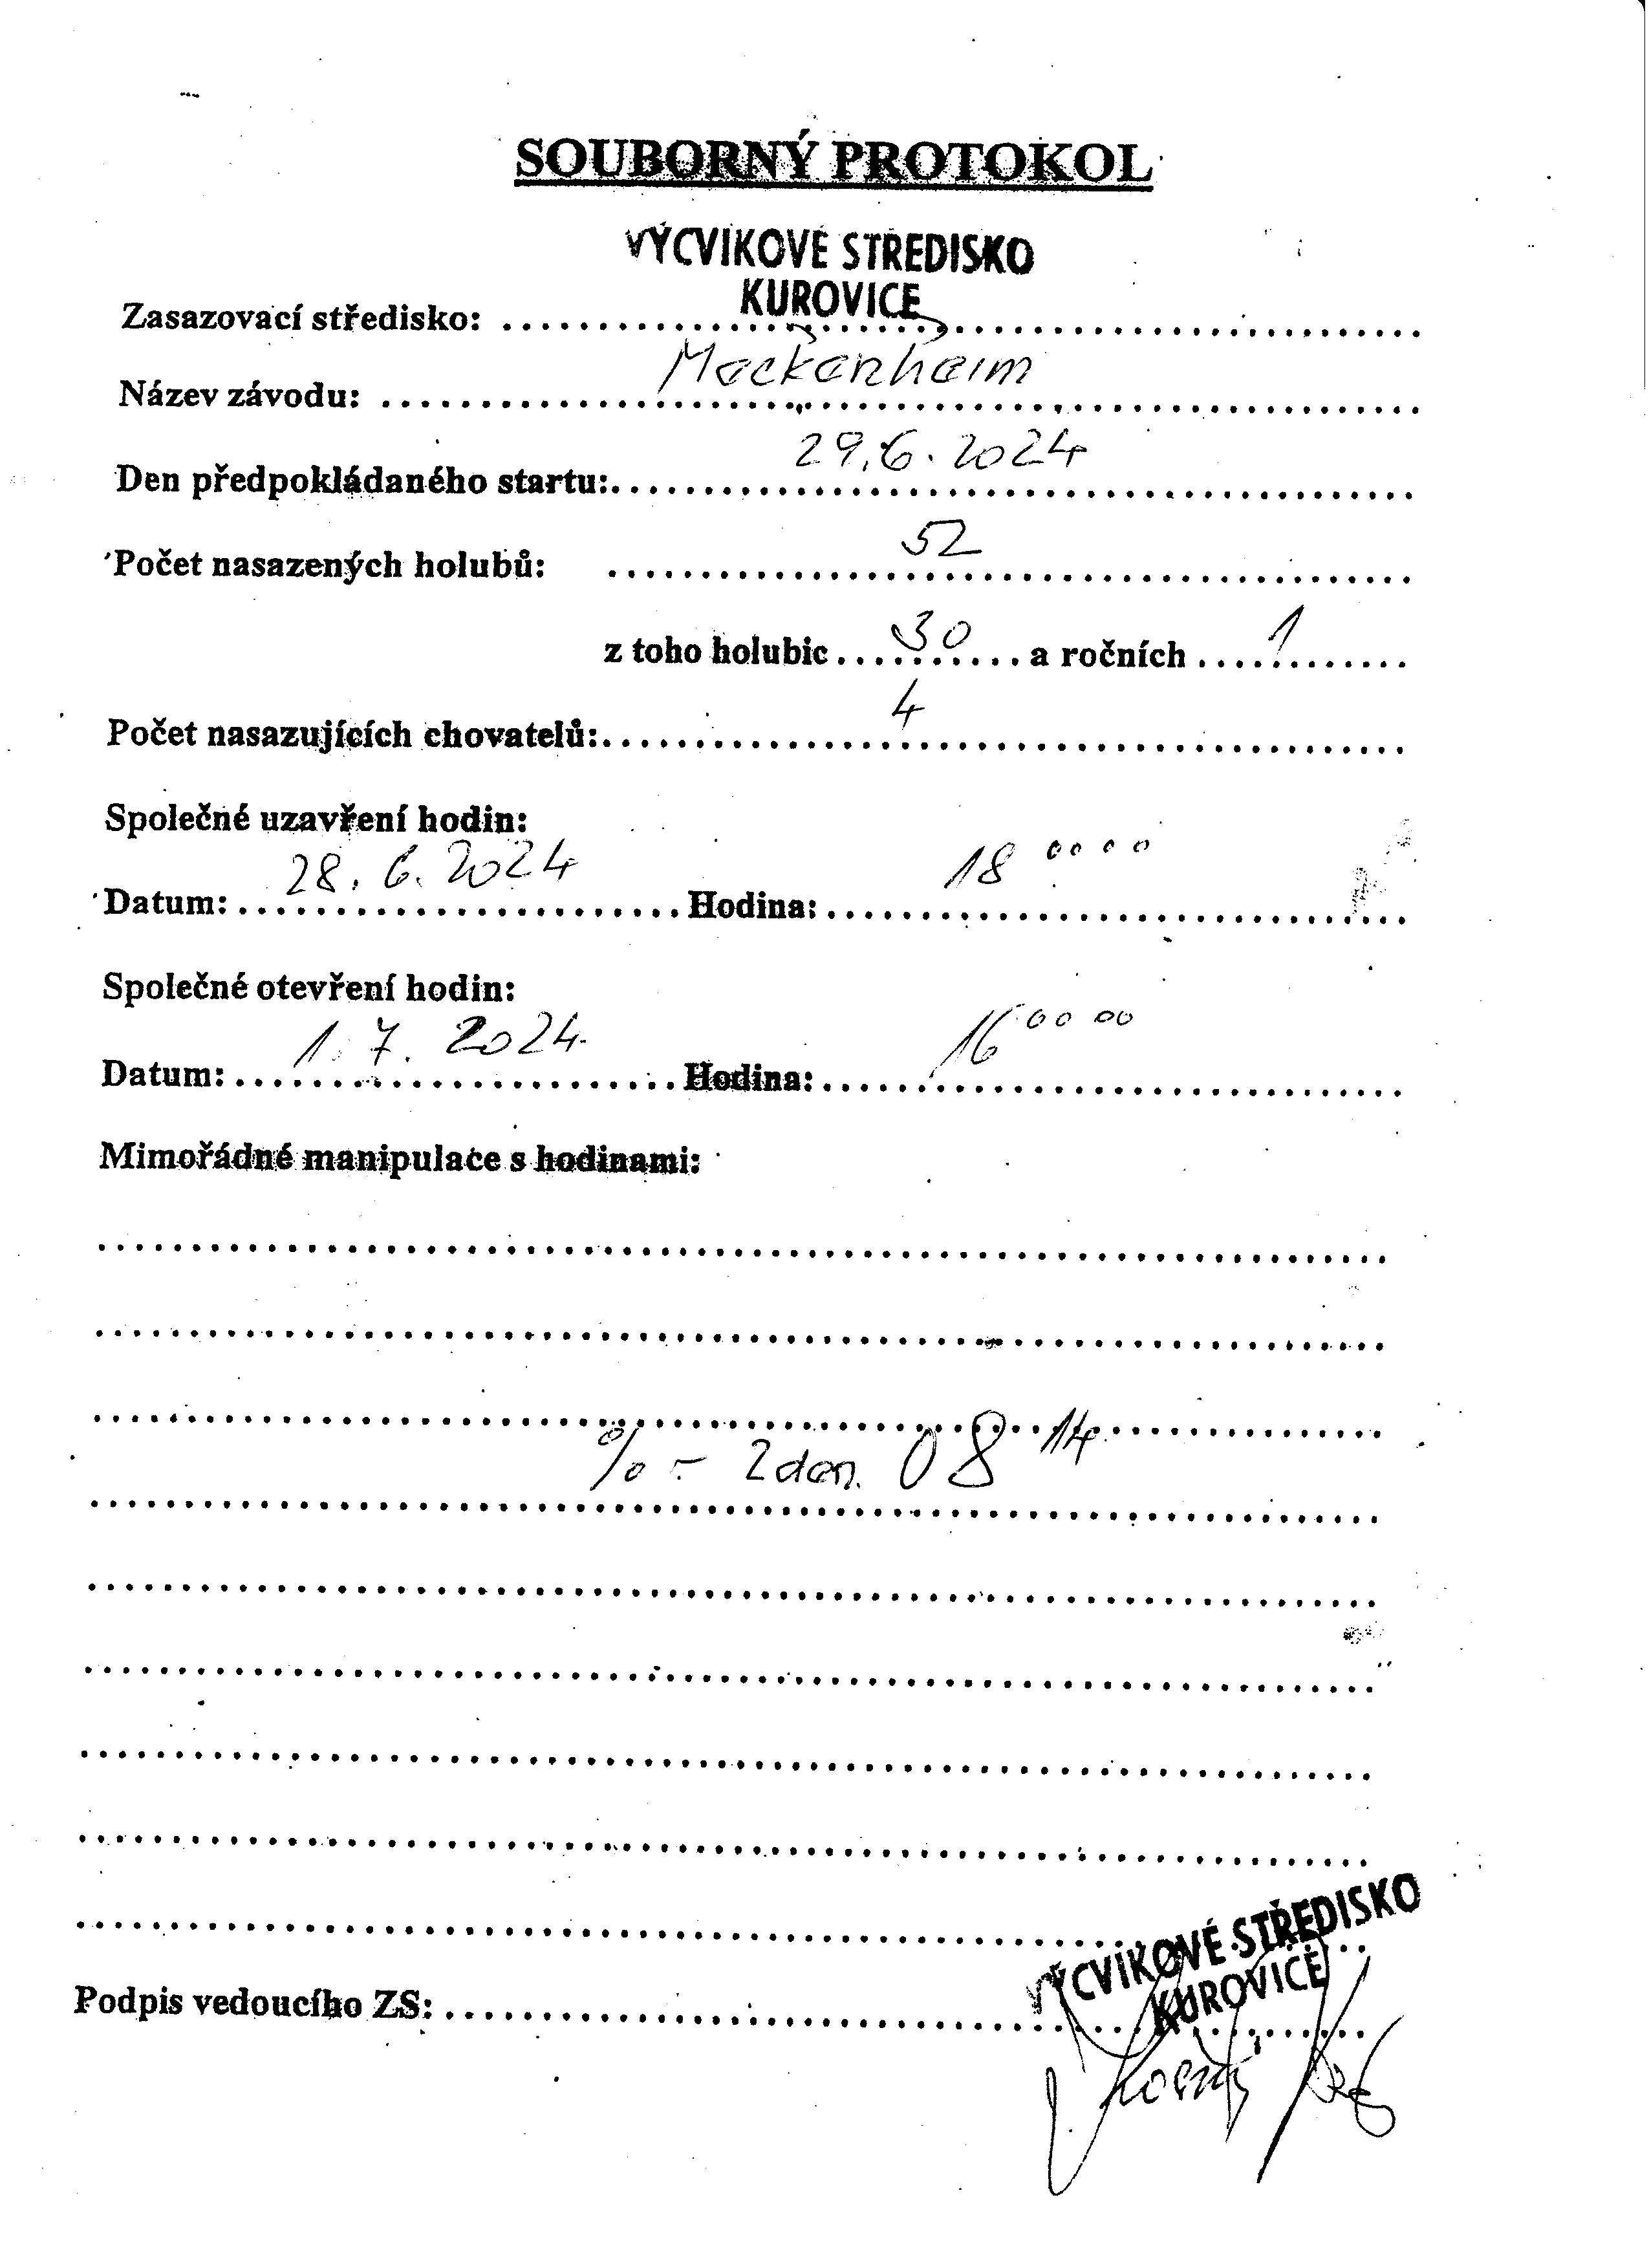 SOUBORNÝ PROTOKOL
VÝCVIKOVÉ STŘEDISKO
KUROVICE
Zasazovací středisko:
Název závodu: Meckenheim
Den předpokládaného startu: 29.6.2024
Počet nasazených holubů: 52
z toho holubic 30 a ročních 1
Počet nasazujících chovatelů: 4
Společné uzavření hodin:
Datum: 28.6.2024 Hodina: 18 00 00
Společné otevření hodin:
Datum: 1.7.2024 Hodina: 16 00 00
Mimořádné manipulace s hodinami:
% - 2den. 08 14
VÝCVIKOVÉ STŘEDISKO
KUROVICE
Podpis vedoucího ZS: